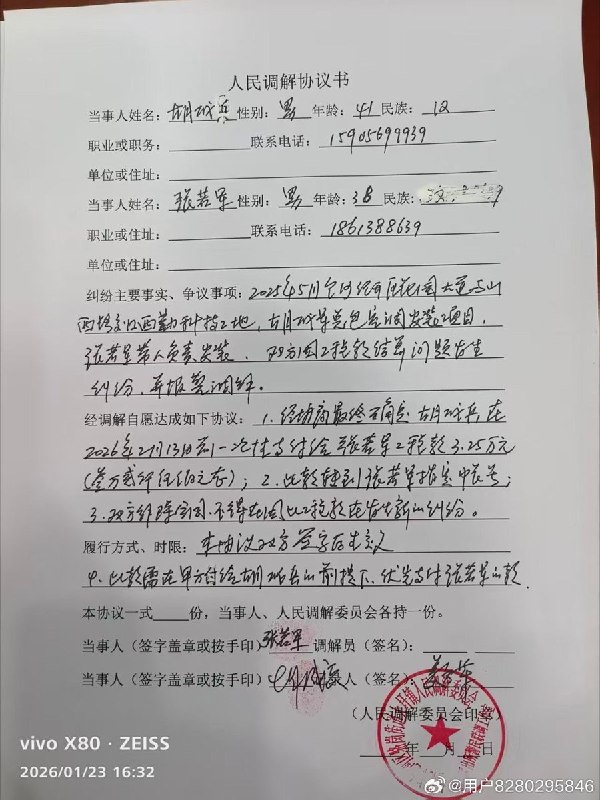 人民调解协议书
当事人姓名：胡成兵 性别：男 年龄：41 民族：汉
职业或职务： 联系电话：15905699939
单位或住址：
当事人姓名：张若军 性别：男 年龄：38 民族：汉
职业或住址： 联系电话：1861388639
单位或住址：
纠纷主要事实、争议事项：2025年5月
工地，胡成兵
张若军带人负责安装，双方因工程款结算问题发生
纠纷，并报警调解。
经调解自愿达成如下协议：1.经协商最终确定胡成兵在
2026年2月13日前一次性支付给张若军工程款3.25万元
（叁万贰仟伍佰元整）；2.此款转到张若军指定账号；
3.双方 不得在因此工程款在发生新的纠纷。
履行方式、时限：本协议双方签字后生效
4.此款需在甲方付给胡成兵的前提下，优先支付张若军的款
本协议一式 份，当事人、人民调解委员会各持一份。
当事人（签字盖章或按手印）张若军 调解员（签名）：
当事人（签字盖章或按手印） 人（签名）：
（人民调解委员会印章）
年 月 日
人民调解委员会
vivo X80 · ZEISS
2026/01/23 16:32
@用户8280295846